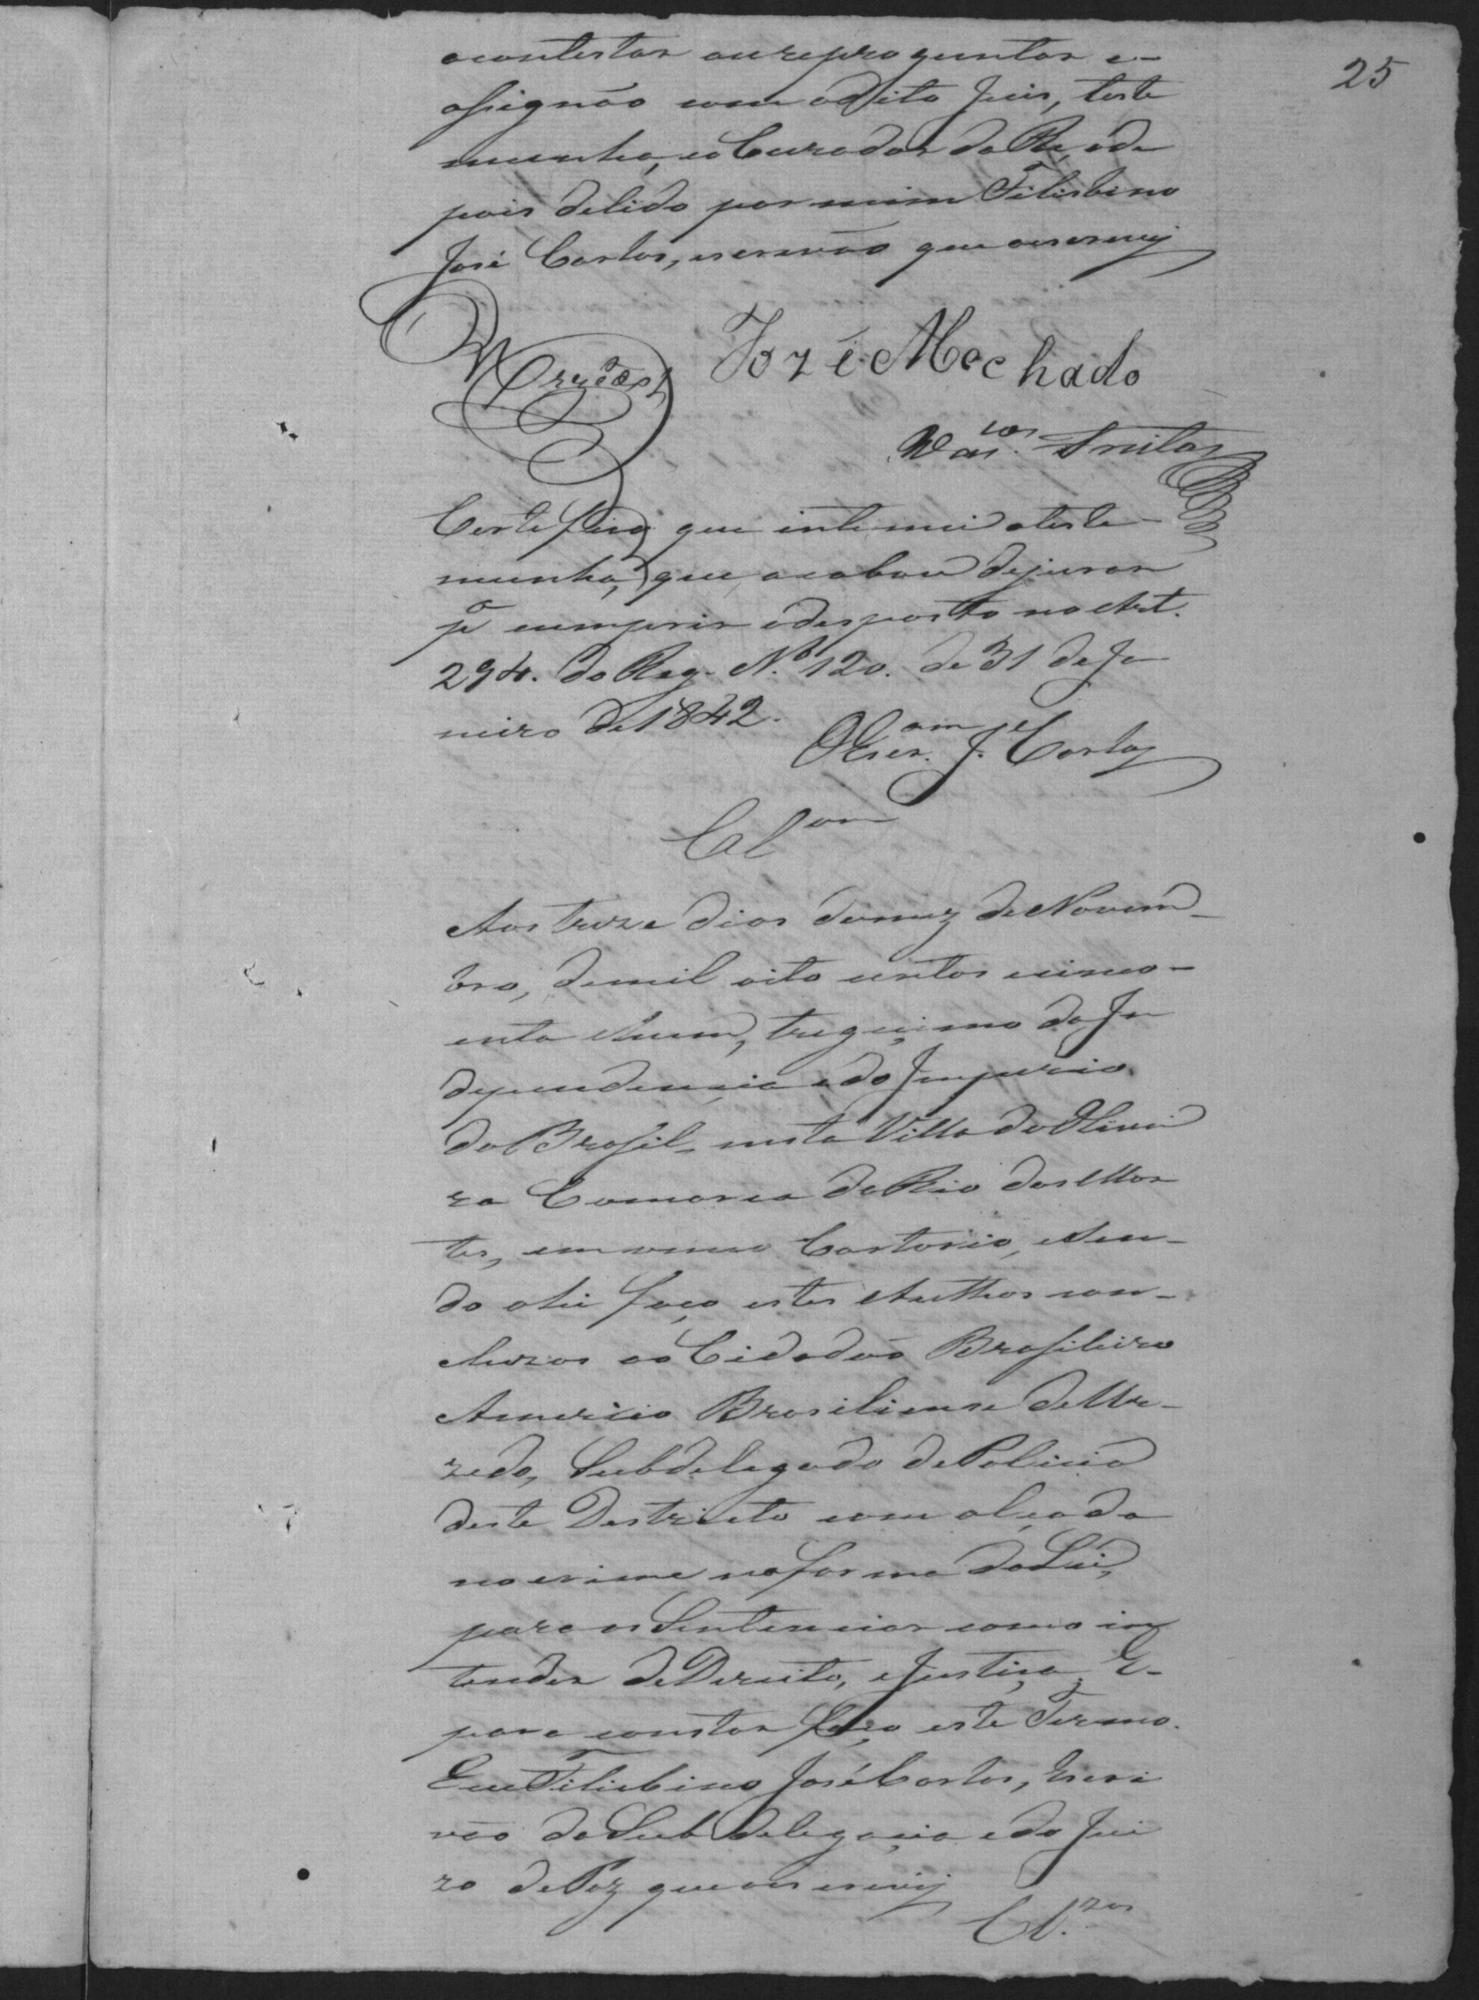 25
acontestar ou reproguntar e-
assignão com o dito Juis, teste
munha, e o Curador da Re, ede
pois delido por mim Felisbino
José Cortes, escrivão que oescrevy
Jozé Mechado
Vas.los Freitas
Certifico que intimei ateste-
munha, que acabou dejurar
pª cumprir odesposto no Art.
294. do Reg. N.º 120. de 31 de Ja
neiro de 1842.
OEscr.am J. Cortes
Cl.am
Aos treze dias domez de Novem-
bro, de mil oito centos cinco-
enta e hum, trigecimo da In
dependencia edo Imperio
do Brasil, nesta Villa da Olivei
ra Comarca do Rio das Mor
tes, em meu Cartorio, e sen-
do ahi faço estes Authos con-
cluzos ao Cidadão Brasileiro
Americo Brasiliense de Ur-
zedo, Subdelegado de Policia
deste Destricto com alçada
no crime na forma da Lei,
para os Sentenciar como in
tender de Dereito, e Justiça. E-
para constar faço este Termo.
Eu Felisbino José Cortes, Escri
vão da Subdelegacia e do Jui
zo de Paz que oescrevy
Cl.zos